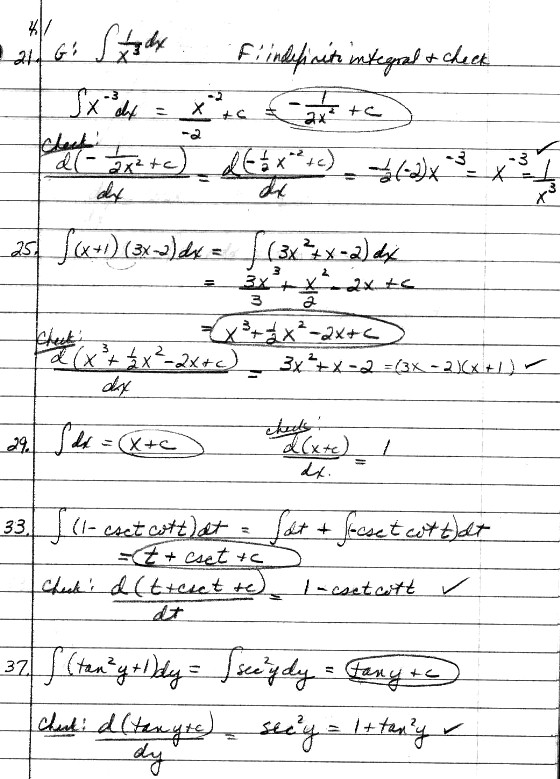 4.1
21. G: ∫ 1/x³ dx F: indefinite integral + check
∫x⁻³dx = x⁻²/-2 + c = -1/2x² + c
Check:
d(-1/2x² + c)/dx = d(-½x⁻² + c)/dx = -½(-2)x⁻³ = x⁻³ = 1/x³ ✓
25. ∫(x+1)(3x-2)dx = ∫(3x²+x-2)dx
= 3x³/3 + x²/2 - 2x + c
= x³ + ½x² - 2x + c
Check:
d(x³ + ½x² - 2x + c)/dx = 3x² + x - 2 = (3x-2)(x+1) ✓
29. ∫dx = x+c check: d(x+c)/dx. = 1
33. ∫(1 - csct cott)dt = ∫dt + ∫(-csct cott)dt
= t + csct + c
Check: d(t+csct+c)/dt = 1 - csct cott ✓
37. ∫(tan²y+1)dy = ∫sec²y dy = tany + c
Check: d(tany+c)/dy = sec²y = 1 + tan²y ✓